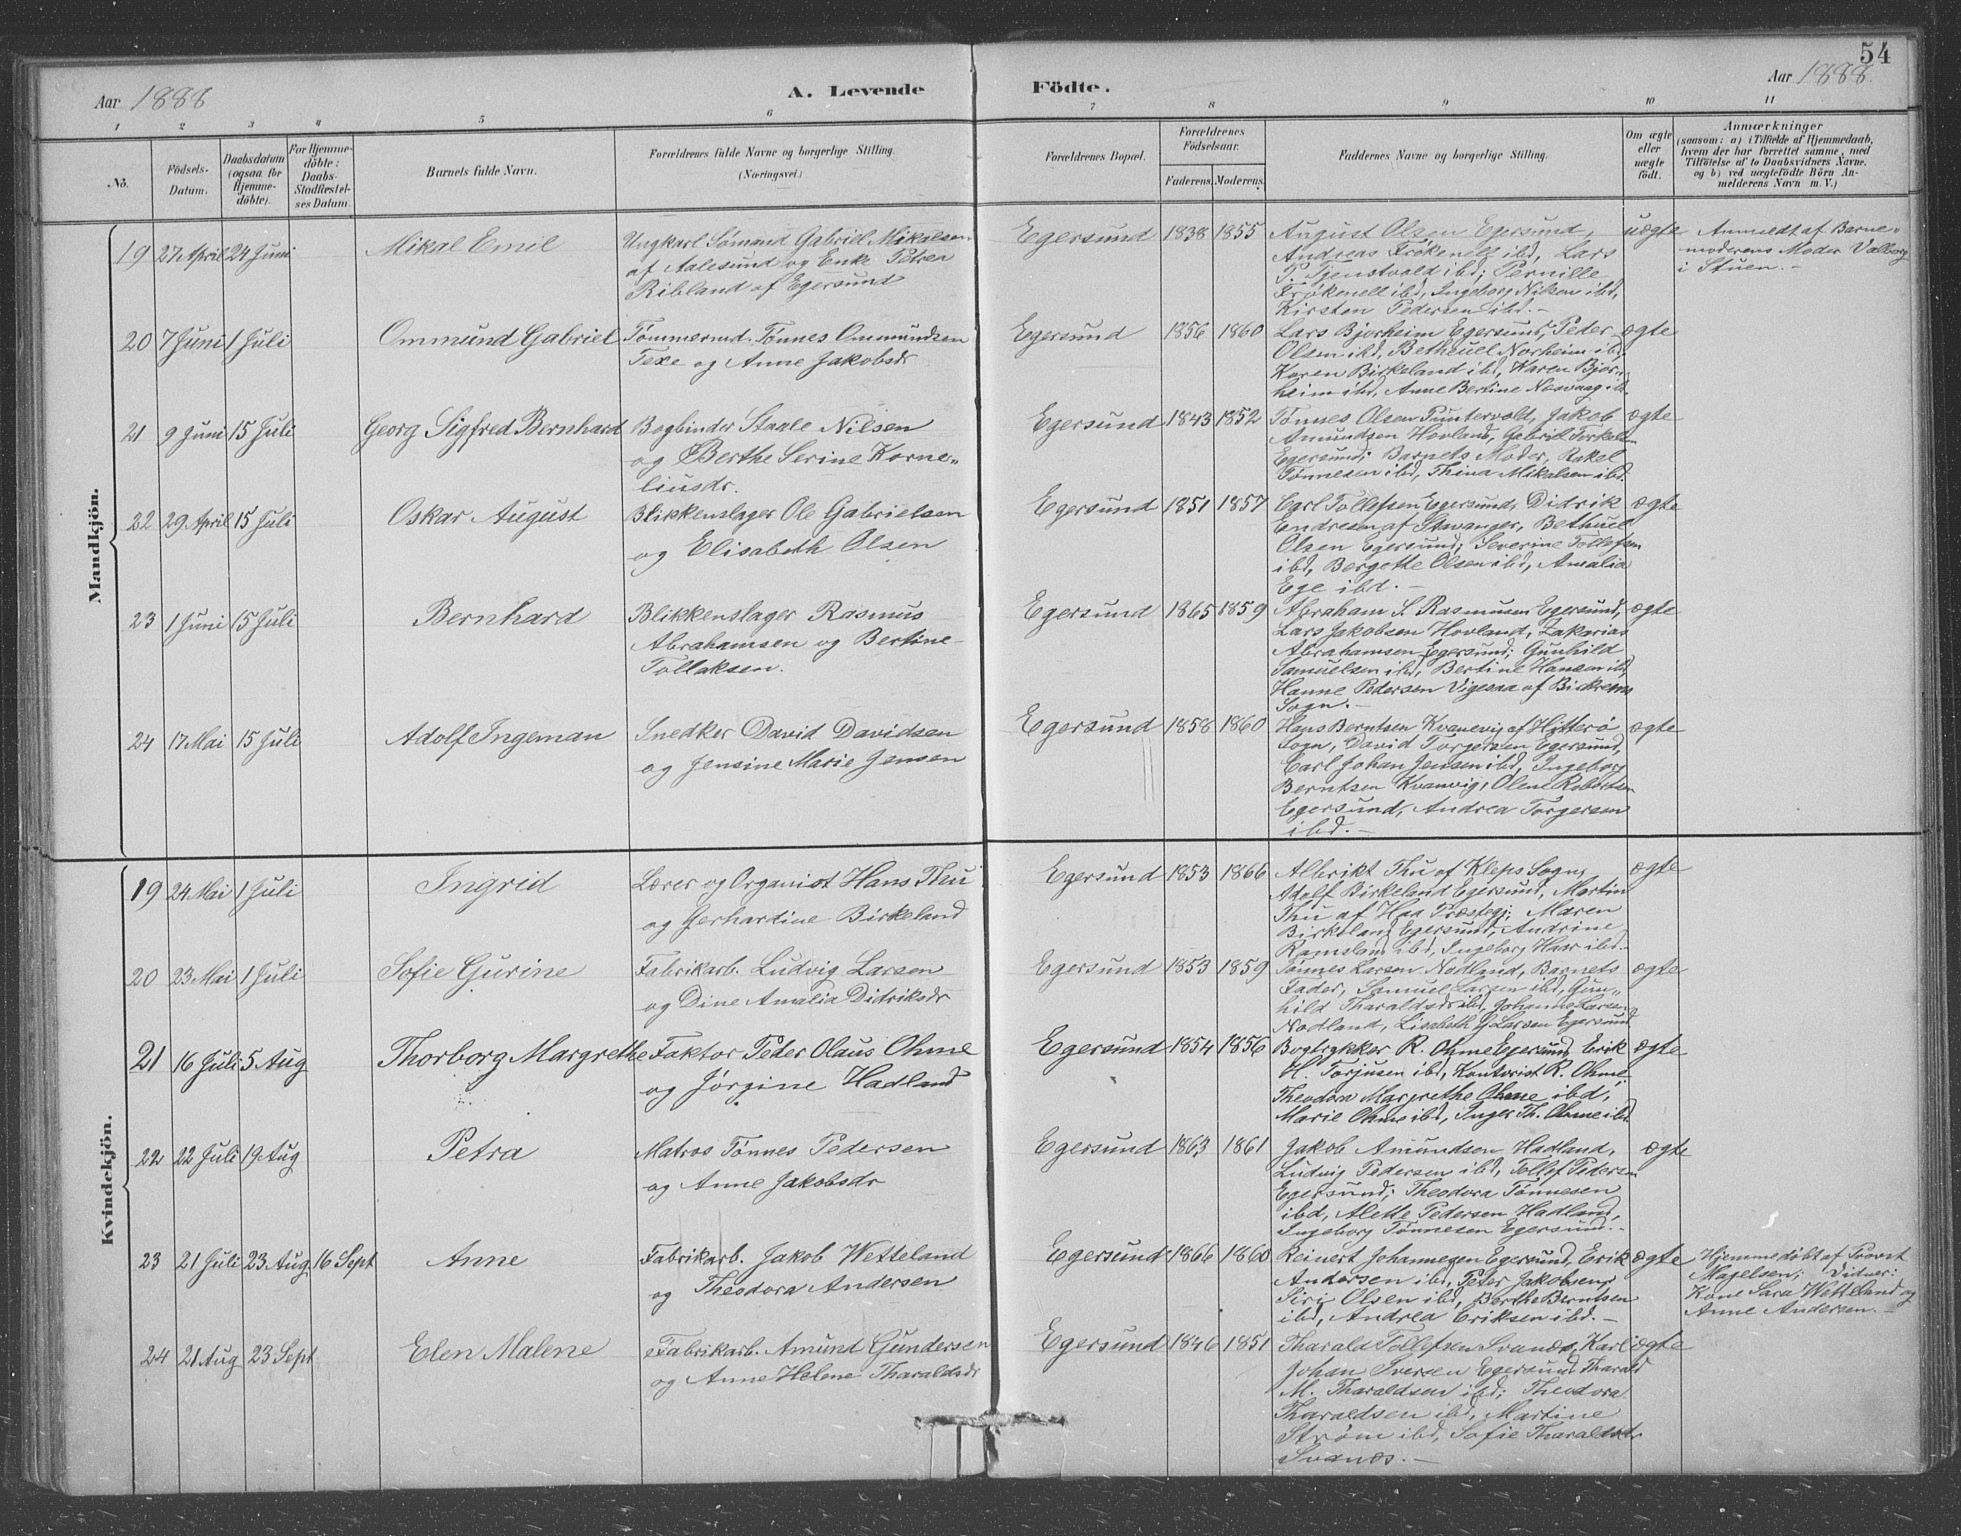 54
Aar 1888
A. Levende
Födte.
Aar 1888.
1 2 3 4 5 6 7 8 9 10 11
No.
Födsels-
Datum.
Daabsdatum
(ogsaa for
Hjemme-
döbte).
For Hjemme-
döbte:
Daabs-
Stadfæstel-
ses Datum.
Barnets fulde Navn.
Forældrenes fulde Navne og borgerlige Stilling.
(Næringsvei.)
Forældrenes Bopæl.
Forældrenes
Födselsaar.
Faderens. Moderens.
Faddernes Navne og borgerlige Stilling.
Om ægte
eller
uægte
födt.
Anmærkninger
(saasom: a) i Tilfælde af Hjemmedaab,
hvem der har forrettet samme, med
Tilföielse af to Daabsvidners Navne.
og b) ved uægtefödte Börn An-
melderens Navn m. V.)
Mandkjön.
19 27 April 24 Juni Mikal Emil
Ungkarl Sømand Gabriel Mikalsen
af Aalesund og Enke Petrea
Ribland af Egersund
Egersund 1838 1855
August Olsen Egersund,
Andreas Frøkenell ibd, Lars
P. Tjenstvold ibd; Pernille
Frøkenell ibd, Ingeborg Nilsen ibd,
Kirsten Pedersen ibd. -
uægte
Anmeldt af Barne-
moderens Moder Valborg
i Stuen. -
20 7 Juni 1 Juli Ommund Gabriel
Tømmermd. Tønnes Ommundsen
Texe og Anne Jakobsdr
Egersund 1856 1860
Lars Bjorheim Egersund, Peder
Olsen ibd, Bethuel Norheim ibd,
Karen Birkeland ibd, Karen Bjor-
heim ibd, Anne Bertine Næsvaag ibd
ægte
21 9 Juni 15 Juli Georg Sigfred Bernhard
Bogbinder Staale Nilsen
og Berthe Serine Korne-
liusdr.
Egersund 1843 1852
Tønnes Olsen Puntervold, Jakob
Amundsen Hovland, Gabriel Torkels-
Egersund; Barnets Moder, Rakel
Tønnesen ibd, Thina Mikalsen ibd.
ægte
22 29 April 15 Juli Oskar August
Blikkenslager Ole Gabrielsen
og Elisabeth Olsen
Egersund 1851 1857
Carl Tollefsen Egersund, Didrik
Endresen af Stavanger, Bethuel
Olsen Egersund; Severine Tollefsen
ibd, Bergette Olsen ibd, Amalia
Ege ibd. -
ægte
23 1 Juni 15 Juli Bernhard
Blikkenslager Rasmus
Abrahamsen og Bertine
Tollaksen.
Egersund 1865 1859
Abraham S. Rasmusen Egersund,
Lars Jakobsen Hovland, Zakarias
Abrahamsen Egersund; Gunhild
Samuelsen ibd, Bertine Hansen ibd,
Hanne Pedersen Vigesaa af Birkrems
Sogn. -
ægte
24 17 Mai 15 Juli Adolf Ingeman
Snedker David Davidsen
og Jensine Marie Jensen
Egersund 1858 1860
Hans Berntsen Kvanevig af Hitterø
Sogn, David Torgersen Egersund,
Carl Johan Jensen ibd, Ingeborg
Berntsen Kvanvig, Olene Robertsen
Egersund, Andrea Torgersen
ibd. -
ægte
Kvindekjön.
19 24 Mai 1 Juli Ingrid
Lærer og Organist Hans Thu
og Gerhardine Birkeland
Egersund 1853 1866
Albrikt Thu af Kleps Sogn,
Adolf Birkeland Egersund, Martin
Thu af Haa Præstegj; Maren
Birkeland Egersund, Andrine
Ramsland ibd, Ingeborg Haar ibd.
ægte
20 23 Mai 1 Juli Sofie Gurine
Fabrikarb. Ludvig Larsen
og Dine Amalia Didriksdr
Egersund 1853 1859
Tønnes Larsen Nodland, Barnets
Fader, Samuel Larsen ibd, Gun-
hild Tharaldsdr ibd, Johanne Larsen
Nodland, Lisabeth G Larsen Egersund
ægte
21 16 Juli 5 Aug Thorborg Margrethe
Faktor Peder Olaus Ohme
og Jørgine Hadland
Egersund 1854 1856
Bogtrykker R. Ohme Egersund, Erik
H. Torjusen ibd, Kontorist R. Ohme;
Theodora Margrethe Ohme ibd,
Marie Ohme ibd, Inger Th. Ohme ibd
ægte
22 22 Juli 19 Aug Petra
Matros Tønnes Pedersen
og Anne Jakobsdr
Egersund 1863 1861
Jakob Amundsen Hadland,
Ludvig Pedersen ibd, Tollef Pedersen
Egersund; Theodora Tønnesen
ibd, Alette Pedersen Hadland,
Ingeborg Tønnesen Egersund. -
ægte
23 21 Juli 23 Aug 16 Sept Anne
Fabrikarb. Jakob Wetteland
og Theodora Andersen
Egersund 1866 1860
Reinert Johannesen Egersund, Erik
Andersen ibd, Peter Jakobsen;
Siri Olsen ibd, Berthe Berntsen
ibd, Andrea Eriksen ibd. -
ægte
Hjemmedøbt af Provst
Magelsen; Vidner:
Kone Sara Wetteland og
Anne Andersen. -
24 21 Aug 23 Sept Elen Malene
Fabrikarb. Amund Gundersen
og Anne Helene Tharaldsdr
Egersund 1846 1851
Tharald Tollefsen Svanæs, Karl
Johan Iversen Egersund, Tharald
M. Tharaldsen ibd; Theodora
Tharaldsen ibd, Martine
Strøm ibd, Sofie Tharaldsdr
Svanæs. -
ægte